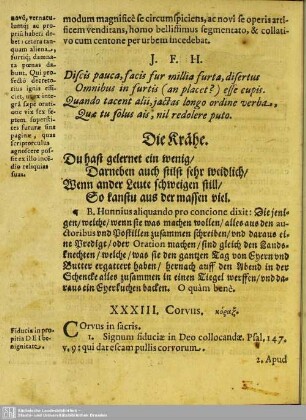 novè, vernatu-
lumq́; ac pro-
priũ habere de-
bet: cetera tan-
quam aliena,
furtiq́; damna-
ta ponas dan-
da. Qui pro-
fectò decerne-
rius ignis effi-
ciet, ut ex inte-
grâ sepè orati-
one vix sex se-
ptem. superfi-
tes futuræ sint
paginæ, quas
scriptorculus
agnoscere pos-
sit ex illo incê-
dio reliquias
suas.
modum magnificè se circumspiciens, ac novi se operis arti-
ficem venditans, homo bellissimus segmentato, & collati-
vo cum centone per urbem incedebat.
J. F. H.
Discis pauca, facis fur millia furta, disertus
Omnibus in furtis (an placet?) esse cupis.
Quando tacent alii, jactas longo ordine verba,
Quæ tu solus ais, nil redolere puto.
Die Krähe.
Du hast gelernet ein wenig/
Darneben auch stilst sehr weidlich/
Wenn ander Leute schweigen still/
So kanstu aus der massen viel.
¶ B. Hunnius aliquando pro concione dixit: Die jeni-
gen/welche/wenn sie was machen wollen/alles aus den au-
ctoribus und Postillen zusammen schreiben/und daraus ei-
ne Predigt/oder Oration machen/sind gleich den Lands-
knechten/welche/was sie den gantzen Tag von Eyern und
Butter ergattert haben/hernach auff den Abend in der
Schencke alles zusammen in einen Tiegel werffen/und dar-
aus ein Eyerkuchen backen. O quàm benè!
XXXIII. Corvus, κόραξ.
Fiducia in pro-
pitia DEI be-
nignitate.
Corvus in sacris.
1. Signum fiduciæ in Deo collocandæ. Psal. 147.
v. 9: qui dat escam pullis corvorum.
2. Apud